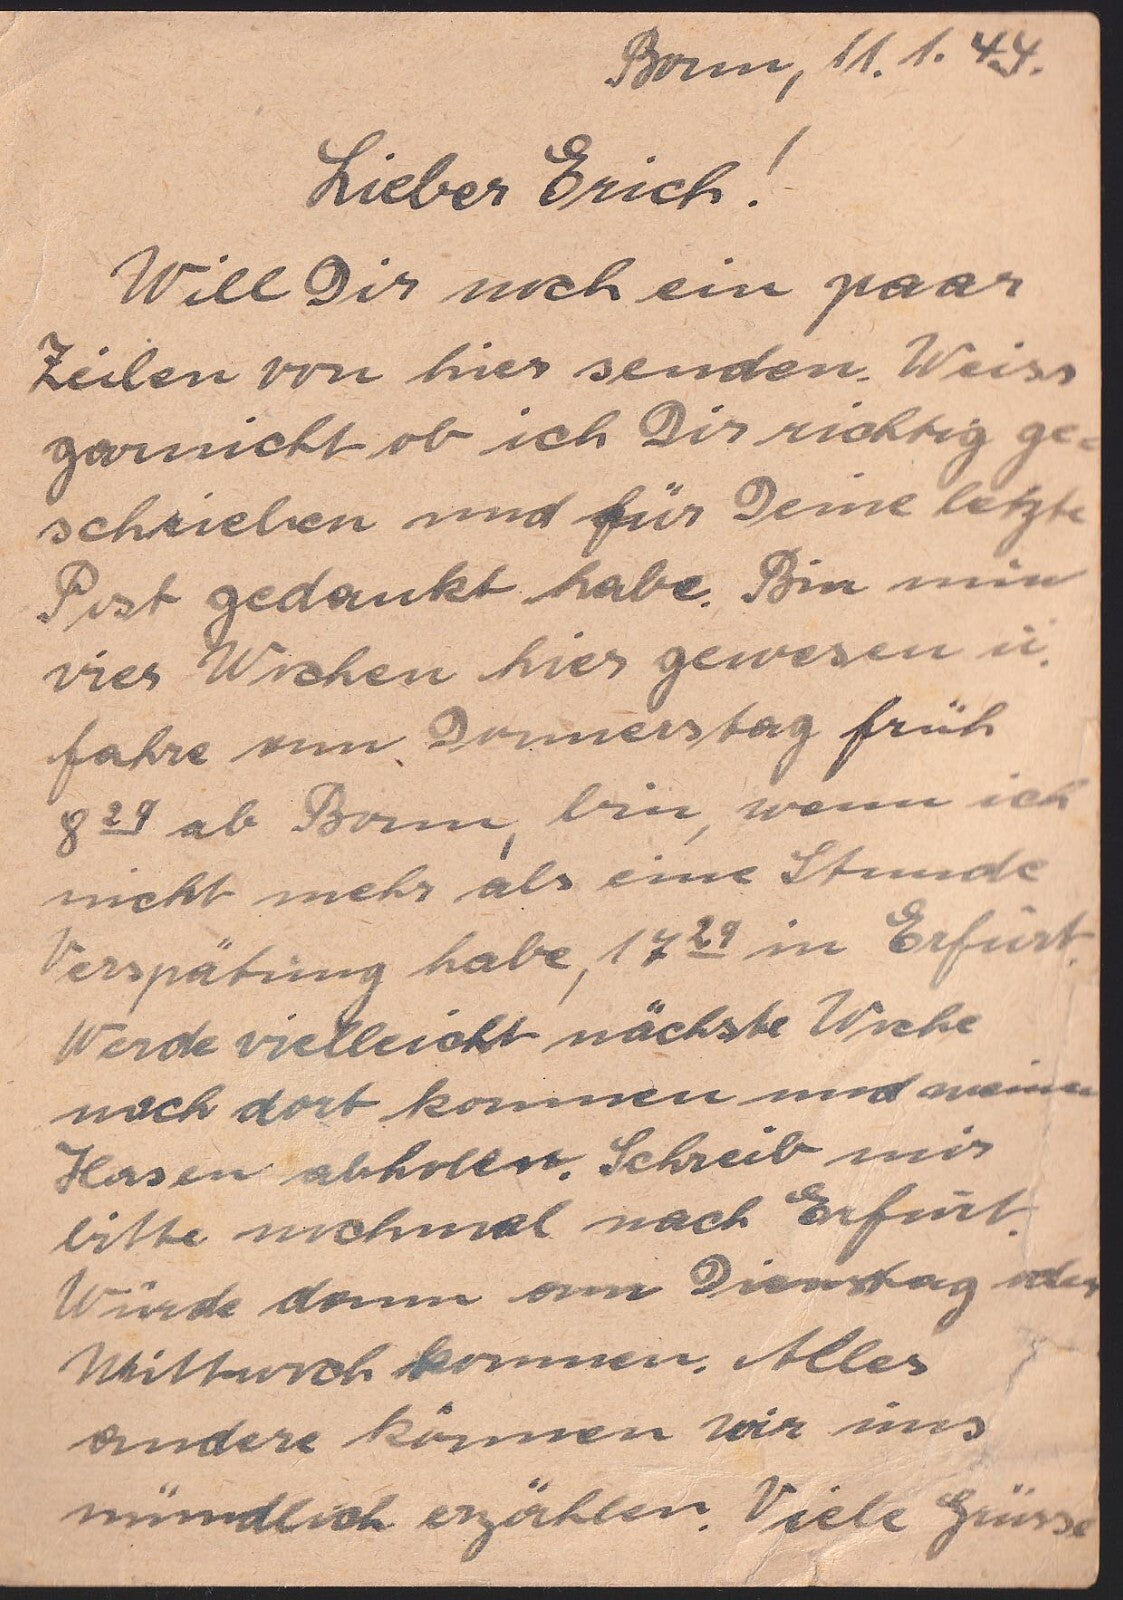 Bonn, 11. 1. 44.
Lieber Erich!
Will Dir noch ein paar
Zeilen von hier senden. Weiss
garnicht ob ich Dir richtig ge-
schrieben und für Deine letzte
Post gedankt habe. Bin nun
vier Wochen hier gewesen u.
fahre am Donnerstag früh
8 29 ab Bonn, bin, wenn ich
nicht mehr als eine Stunde
Verspätung habe, 17 29 in Erfurt.
Werde vielleicht nächste Woche
nach dort kommen und meinen
Hasen abholen. Schreib mir
bitte nochmal nach Erfurt.
Würde dann am Dienstag oder
Mittwoch kommen. Alles
andere können wir uns
mündlich erzählen. Viele Grüsse